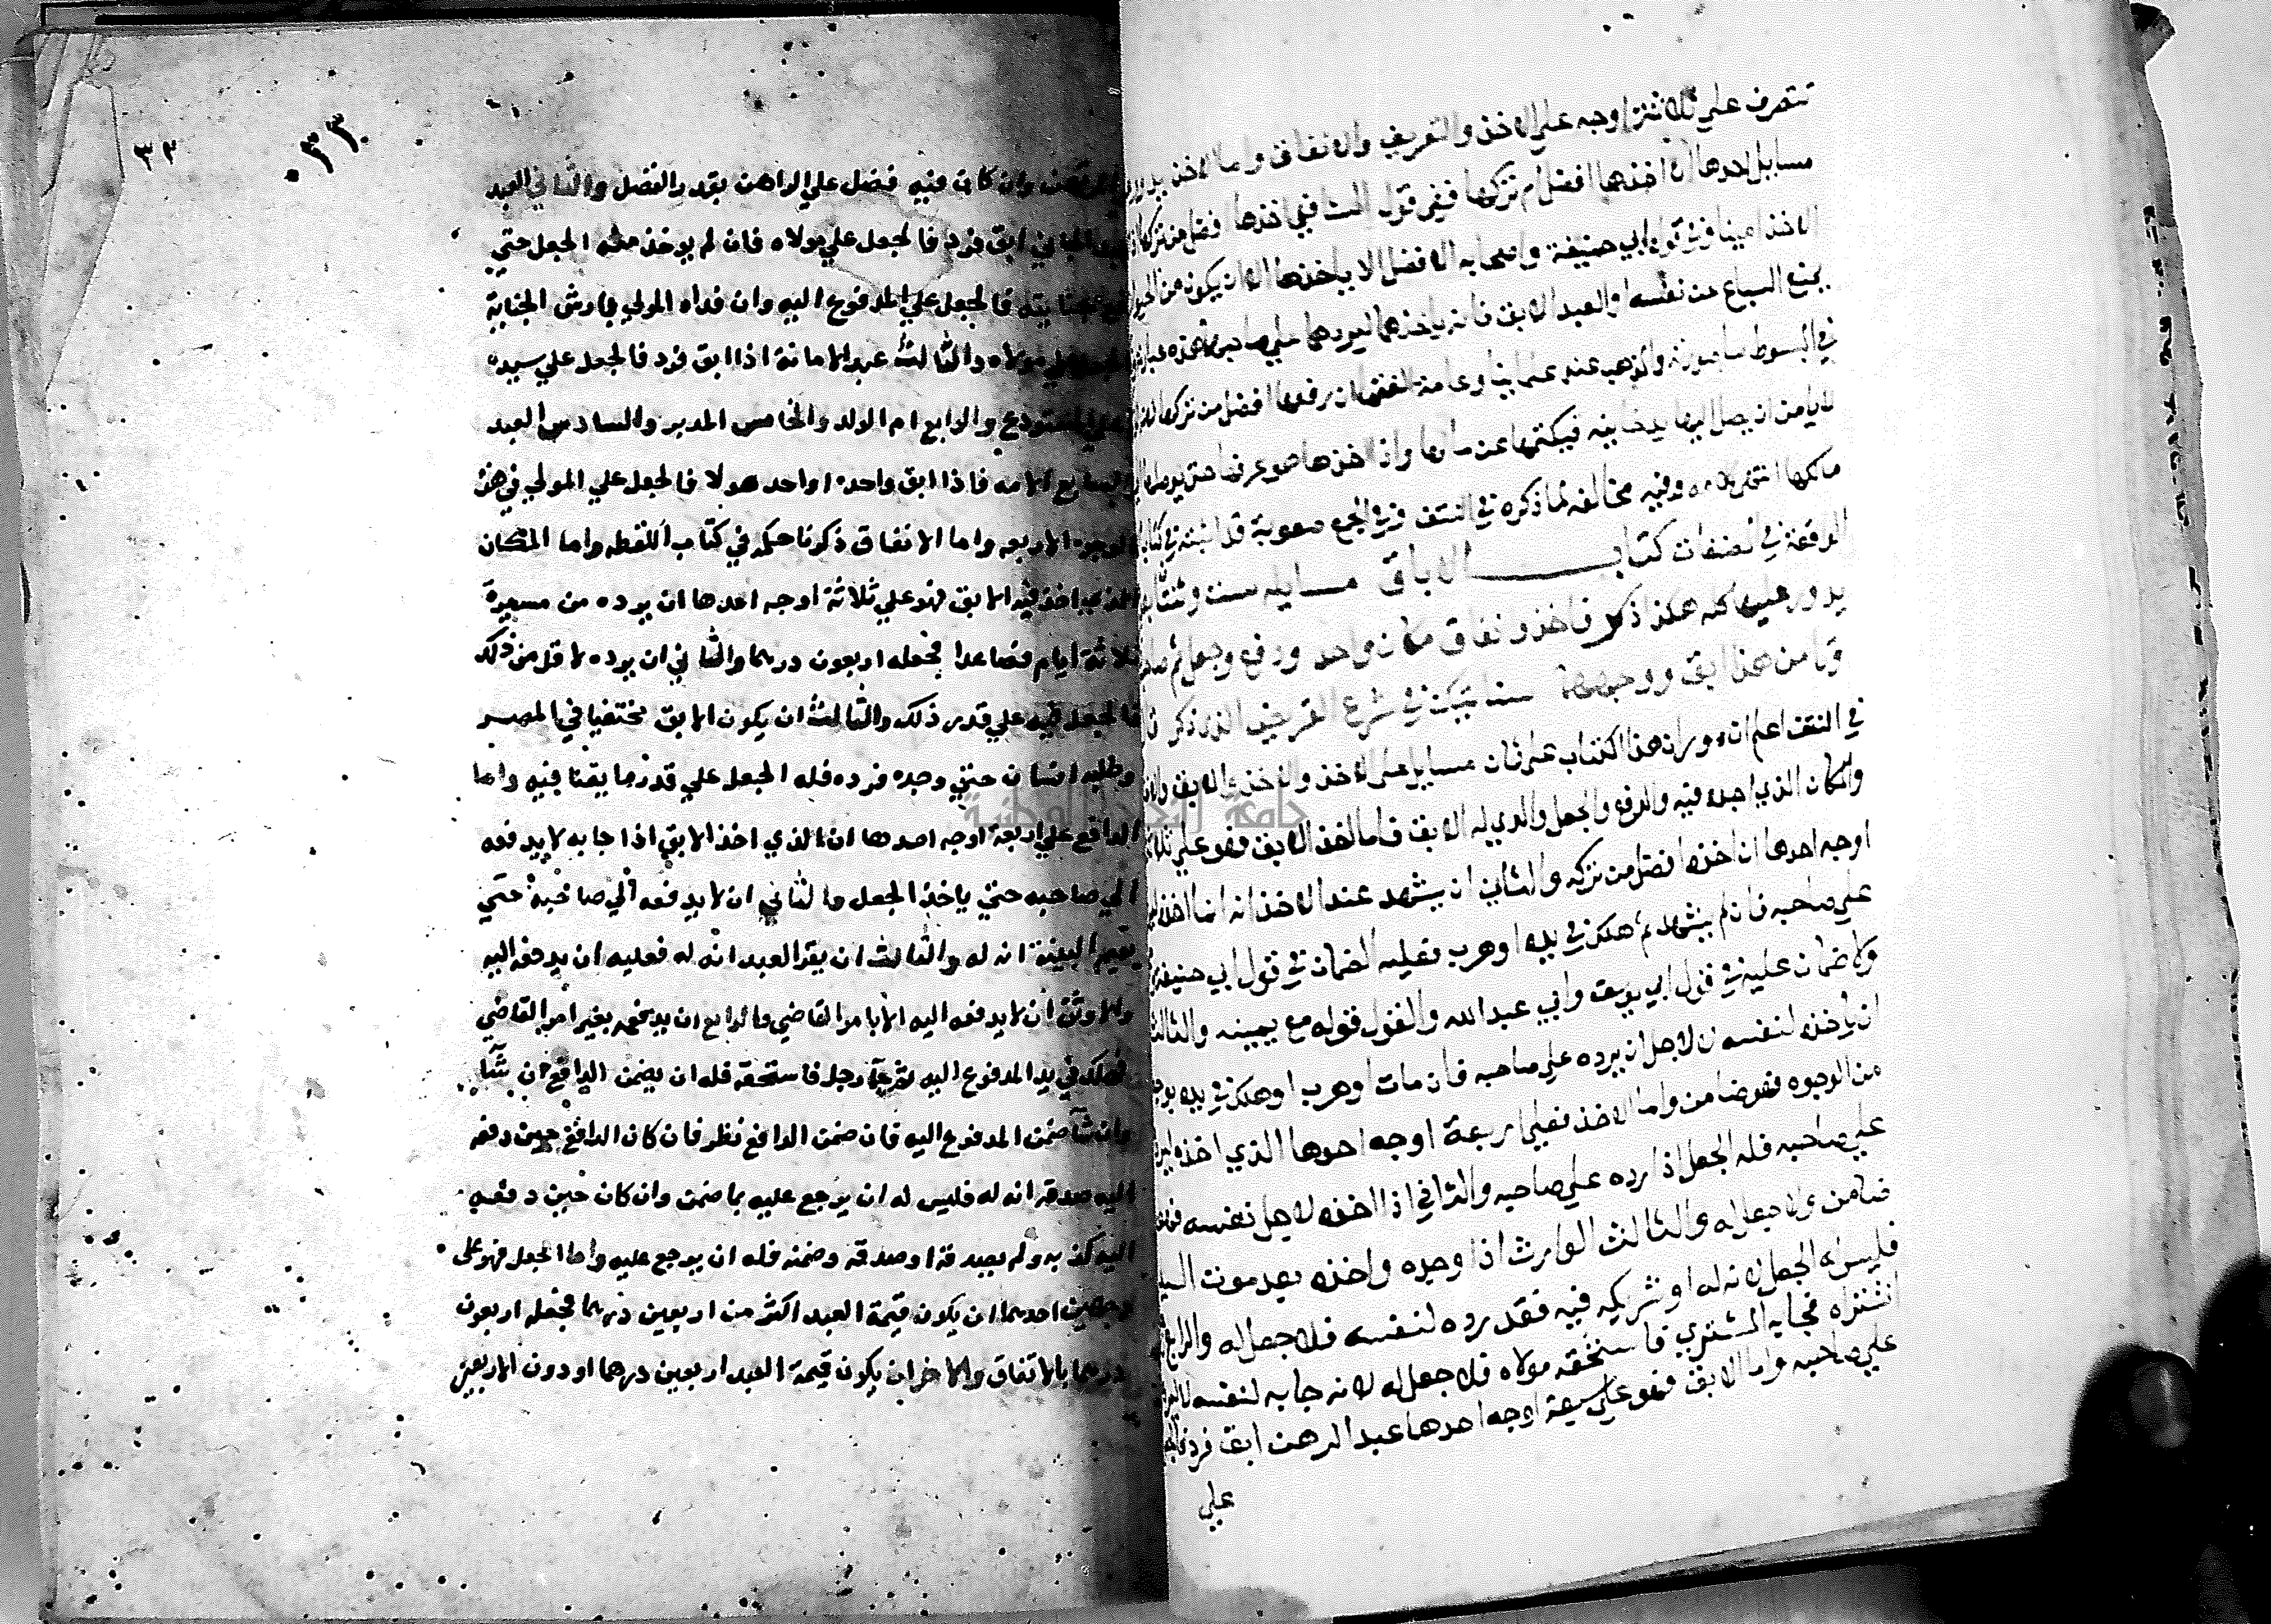 تتصرف علي ثلاثة اوجه علي الاخذ والتعريف والانفاق واما الاخذ
مسايل احدها ان اخذها افضل ام تركها ففي قول الشافعي اخذها افضل من تركها
الاخذ امينا وفي قول ابي حنيفة واصحابه الافضل الا ياخذها الا ان يكون من
يمنع السباع عن نفسه والعبد الابق فانه ياخذها ليردها علي صاحبها هذه
في المبسوط والمذهب عند علماينا وعامة الفقها ان رفعها افضل من تركها
لا يامن ان يصل اليها يد خاينه فيكتمها عن مالكها واذا اخذها هو عرفها حتي يوصلها
مالكها انتهي وفيه مخالفه لما ذكره في النتف وفي الجمع صعوبة قد
كتاب الاباق مسايله ست
يدور عليها كه هكذا ذكر فاخذ ونفاق مكان واحد ودفع وجعل
من هذا ابق
في النتف اعلم ان دوران هذا الكتاب علي ثمان مسايل علي الاخذ والاخذ والابق
والمكان الذي اخذه فيه والدفع والجعل والذي له الابق فاما اخذ الابق فهو علي
اوجه احدها ان اخذه افضل من تركه والثاني ان يشهد عند الاخذ انه انما اخذه
علي صاحبه فان لم يشهد ثم هلك في يده او هرب فعليه الضمان في قول ابي حنيفة
ولا ضمان عليه في قول ابي يوسف وابي عبد الله والقول قوله مع يمينه والثالث
ان ياخذه لنفسه لا لاجل ان يرده علي صاحبه فان مات او هرب او هلك في يده بوجه
من الوجوه فهو ضامن واما الاخذ فعلي اربعة اوجه احدها الذي اخذه
علي صاحبه فله الجعل اذا رده علي صاحبه والثاني اذا اخذه لاجل نفسه
ضامن ولا جعل له والثالث الوارث اذا وجده واخذه بعد موت السيد
فليس له الجعل لانه له او شريكه فيه فقد رده لنفسه فلا جعل له والرابع
اشتراه فجا به المشتري فاستحقه مولاه فلا جعل له لانه جا به لنفسه
علي صاحبه واما الابق فهو علي سبعة اوجه احدها عبد الرهن ابق فرد
علي
٣٣
٣٣
المرتهن وان كان فيه فضل علي الراهن بقدر الفضل والثاني العبد
الجاني ابق فرد فالجعل علي مولاه فان لم يوخذ منه الجعل حتي
دفع بجنايته فالجعل علي المدفوع اليه وان فداه المولي بارش الجناية
فالجعل علي مولاه والثالث عبد الامانة اذا ابق فرد فالجعل علي سيده
المستودع والرابع ام الولد والخامس المدبر والسادس العبد
والسابع الامه فاذا ابق واحده او احد هولا فالجعل علي المولي في هذه
الوجوه الاربعه واما الانفاق ذكرنا حكمه في كتاب اللقطه واما المكان
الذي اخذ فيه الابق فهو علي ثلاثة اوجه احدها ان يرده من مسيرة
ثلاثة ايام فصاعدا فجعله اربعون درهما والثاني ان يرده لاقل من ذلك
فالجعل فيه علي قدر ذلك والثالث ان يكون الابق مختفيا في المصر
وطلبه انسان حتي وجده فرده فله الجعل علي قدر ما يقنا فيه واما
الدافع علي اربعة اوجه احدها ان الذي اخذ الابق اذا جا به لا يدفعه
الي صاحبه حتي ياخذ الجعل والثاني ان لا يدفعه الي صاحبه حتي
يقيم البينة انه له والثالث ان يقر العبد انه له فعليه ان يدفعه اليه
والاوثق ان لا يدفعه اليه الا بامر القاضي والرابع ان يدفعه بغير امر القاضي
فهلك في يد المدفوع اليه ثم جا رجل فاستحقه فله ان يضمن الدافع ان شا
وان شا ضمن المدفوع اليه فان ضمن الدافع نظر فان كان الدافع حين دفعه
اليه صدقه انه له فليس له ان يرجع عليه بما ضمن وان كان حين دفعه
اليه كذبه ولم يصدقه او صدقه وضمنه فله ان يرجع عليه واما الجعل فهو علي
وجهين احدهما ان يكون قيمة العبد اكثر من اربعين درهما فجعله اربعون
درهما بالاتفاق والاخر ان يكون قيمة العبد اربعين درهما او دون الاربعين
جامعة النجاح الوطنية